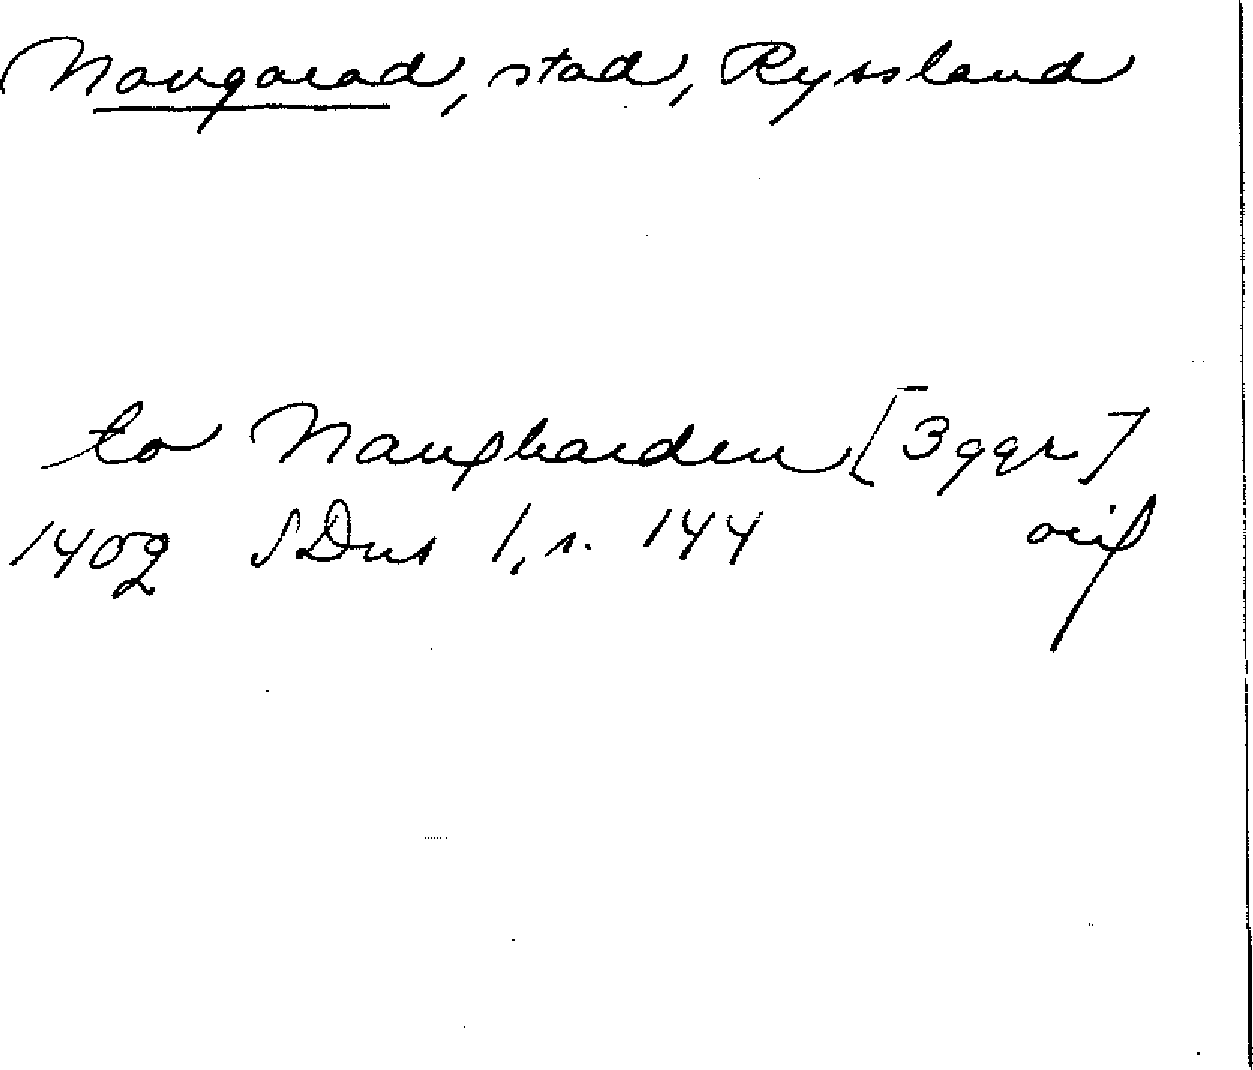 Novgorod, stad, Ryssland
to Naugharden [3 ggr]
1402 SDns 1, s. 144 orig